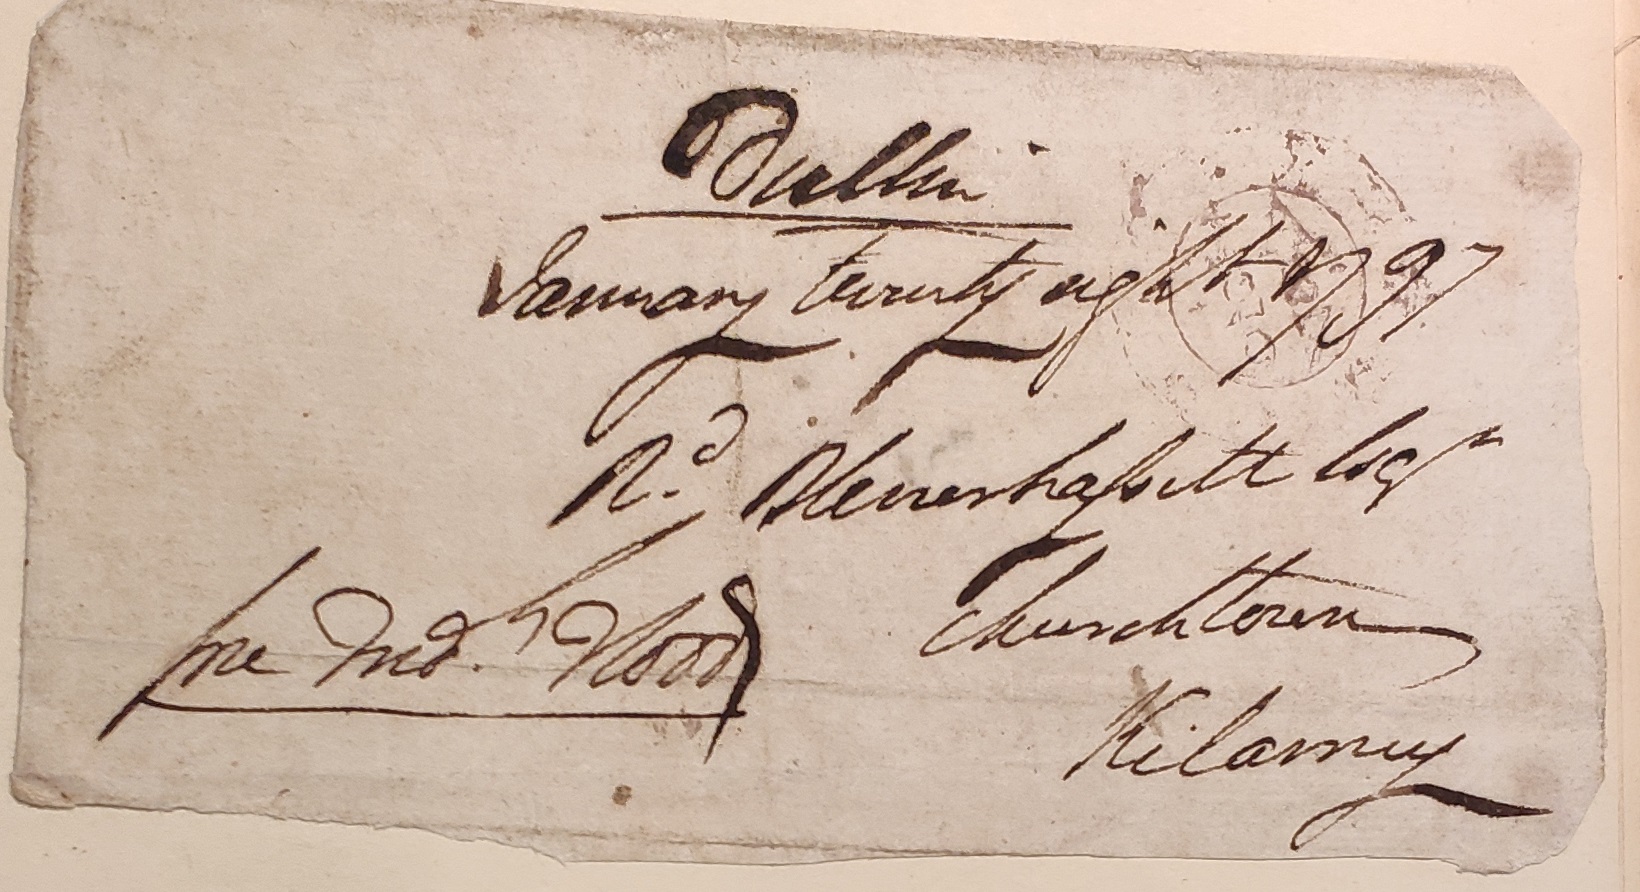 Dublin
January twenty eight 1797
R.d Blennerhassett Esqr
Churchtown
Kilarney
free